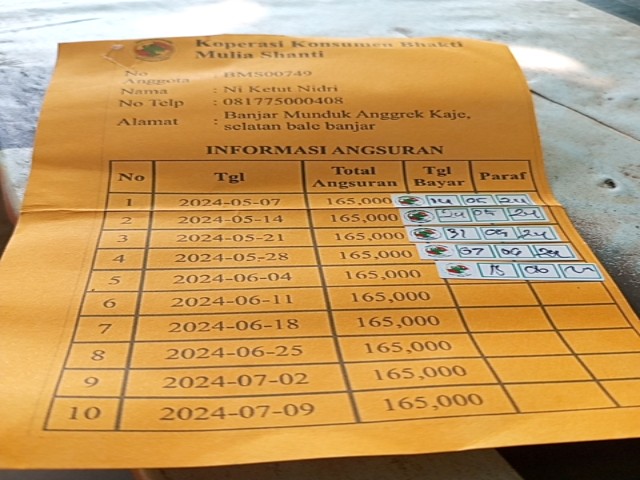 Koperasi Konsumen Bhakti
Mulia Shanti
No
Anggota : BMS00749
Nama : Ni Ketut Nidri
No Telp : 081775000408
Alamat : Banjar Munduk Anggrek Kaje,
selatan bale banjar
INFORMASI ANGSURAN
No Tgl Total Angsuran Tgl Bayar Paraf
1 2024-05-07 165,000 14 05 24
2 2024-05-14 165,000 24 05 24
3 2024-05-21 165,000 31 05 24
4 2024-05-28 165,000 07 06 24
5 2024-06-04 165,000 15 06 24
6 2024-06-11 165,000
7 2024-06-18 165,000
8 2024-06-25 165,000
9 2024-07-02 165,000
10 2024-07-09 165,000